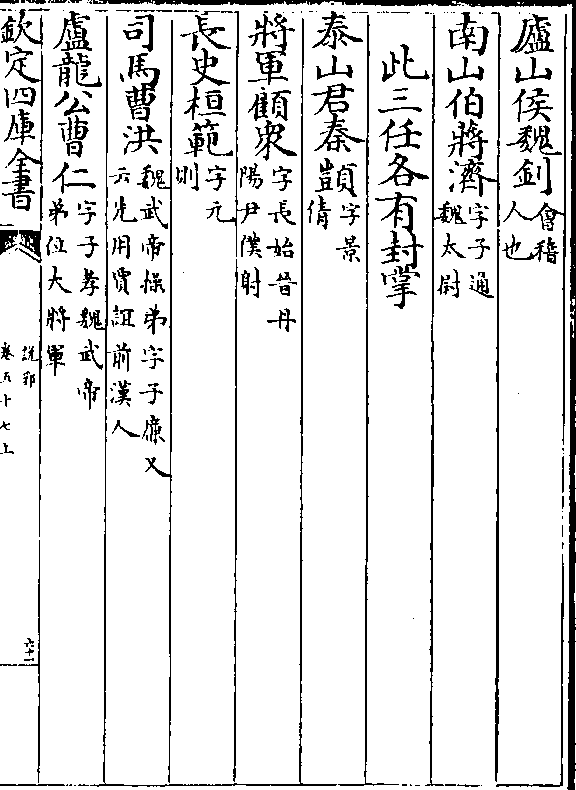 廬山侯魏釗會稽
人也
南山伯將濟字子通
魏太尉
此三任各有封掌
泰山君秦顗字景
倩
將軍顧衆字長始晉丹
陽尹僕射
長史桓範字元
則
司馬曹洪魏武帝操弟字子廉又
云先用賈誼前漢人
盧龍公曹仁字子孝魏武帝
弟位大將軍
欽定四庫全書
說郛
卷五十七上